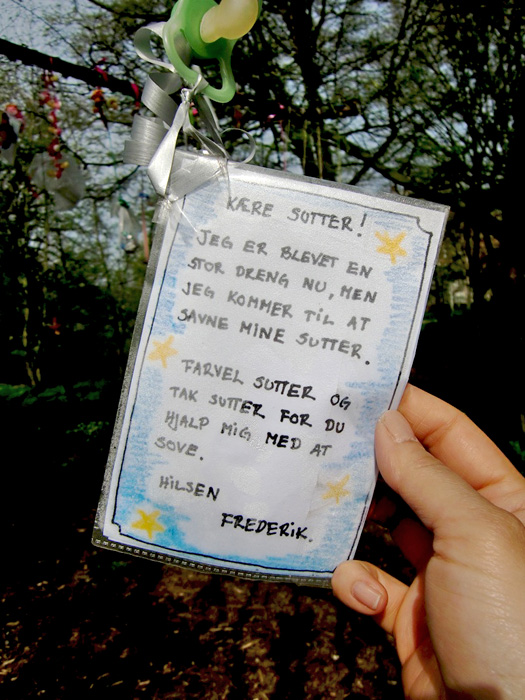 KÆRE SUTTER!
JEG ER BLEVET EN
STOR DRENG NU, MEN
JEG KOMMER TIL AT
SAVNE MINE SUTTER.
FARVEL SUTTER OG
TAK SUTTER FOR DU
HJALP MIG MED AT
SOVE.
HILSEN
FREDERIK.